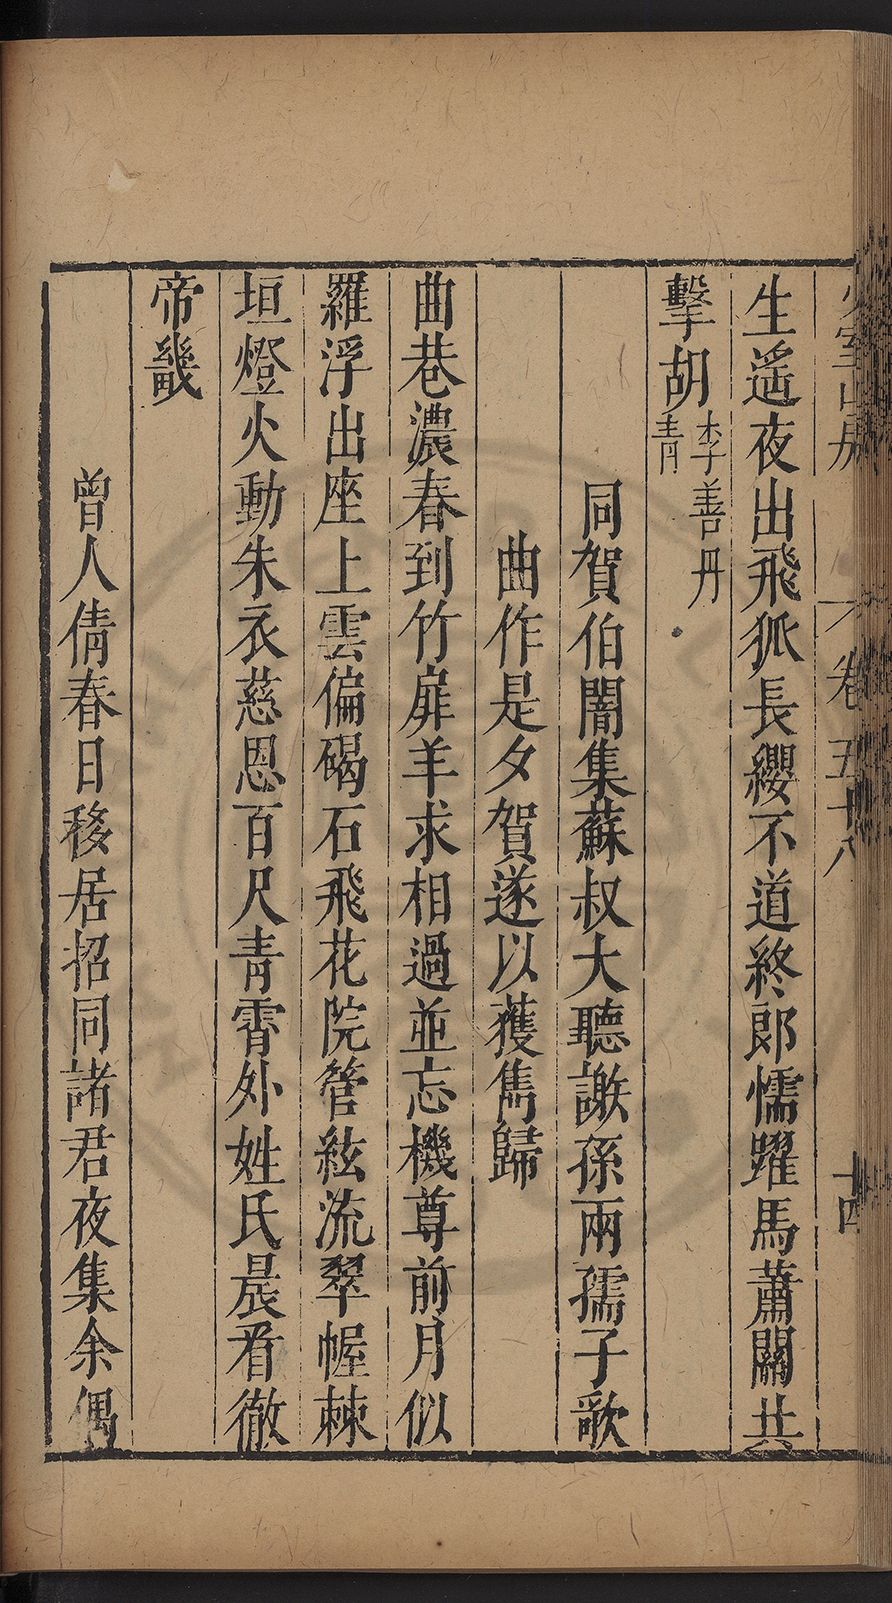 少室山房
卷五十八
十四
生遥夜出飛狐長纓不道終郎懦躍馬蕭關共
擊胡李善丹青
同賀伯闇集蘇叔大聽謝孫兩孺子歌
曲作是夕賀遂以獲雋歸
曲巷濃春到竹扉羊求相過並忘機尊前月似
羅浮出座上雲偏碣石飛花院管絃流翠幄棘
垣燈火動朱衣慈恩百尺青霄外姓氏晨看徹
帝畿
曾人倩春日移居招同諸君夜集余偶